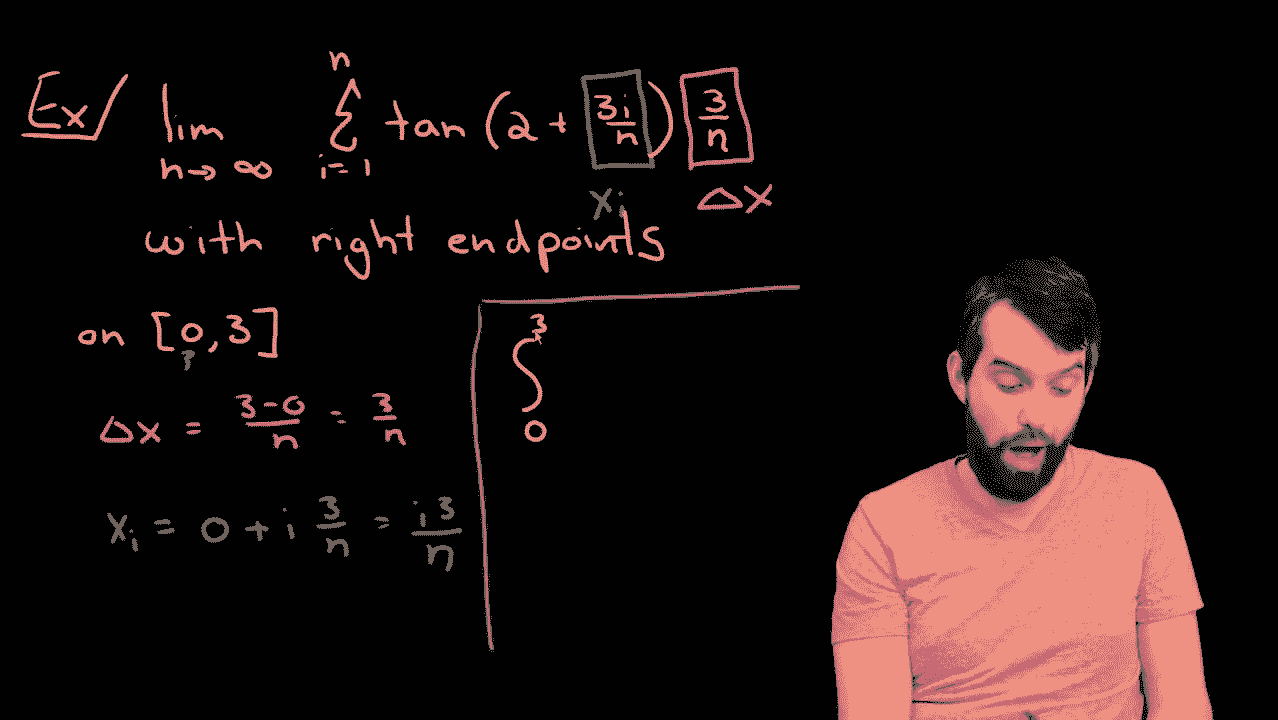 Ex/ lim n→∞ n Σ i=1 tan (2 + 3i/n) 3/n
xi Δx
with right endpoints
on [0, 3]
?
Δx = 3-0/n = 3/n
xi = 0 + i 3/n = i3/n
∫ 3 0